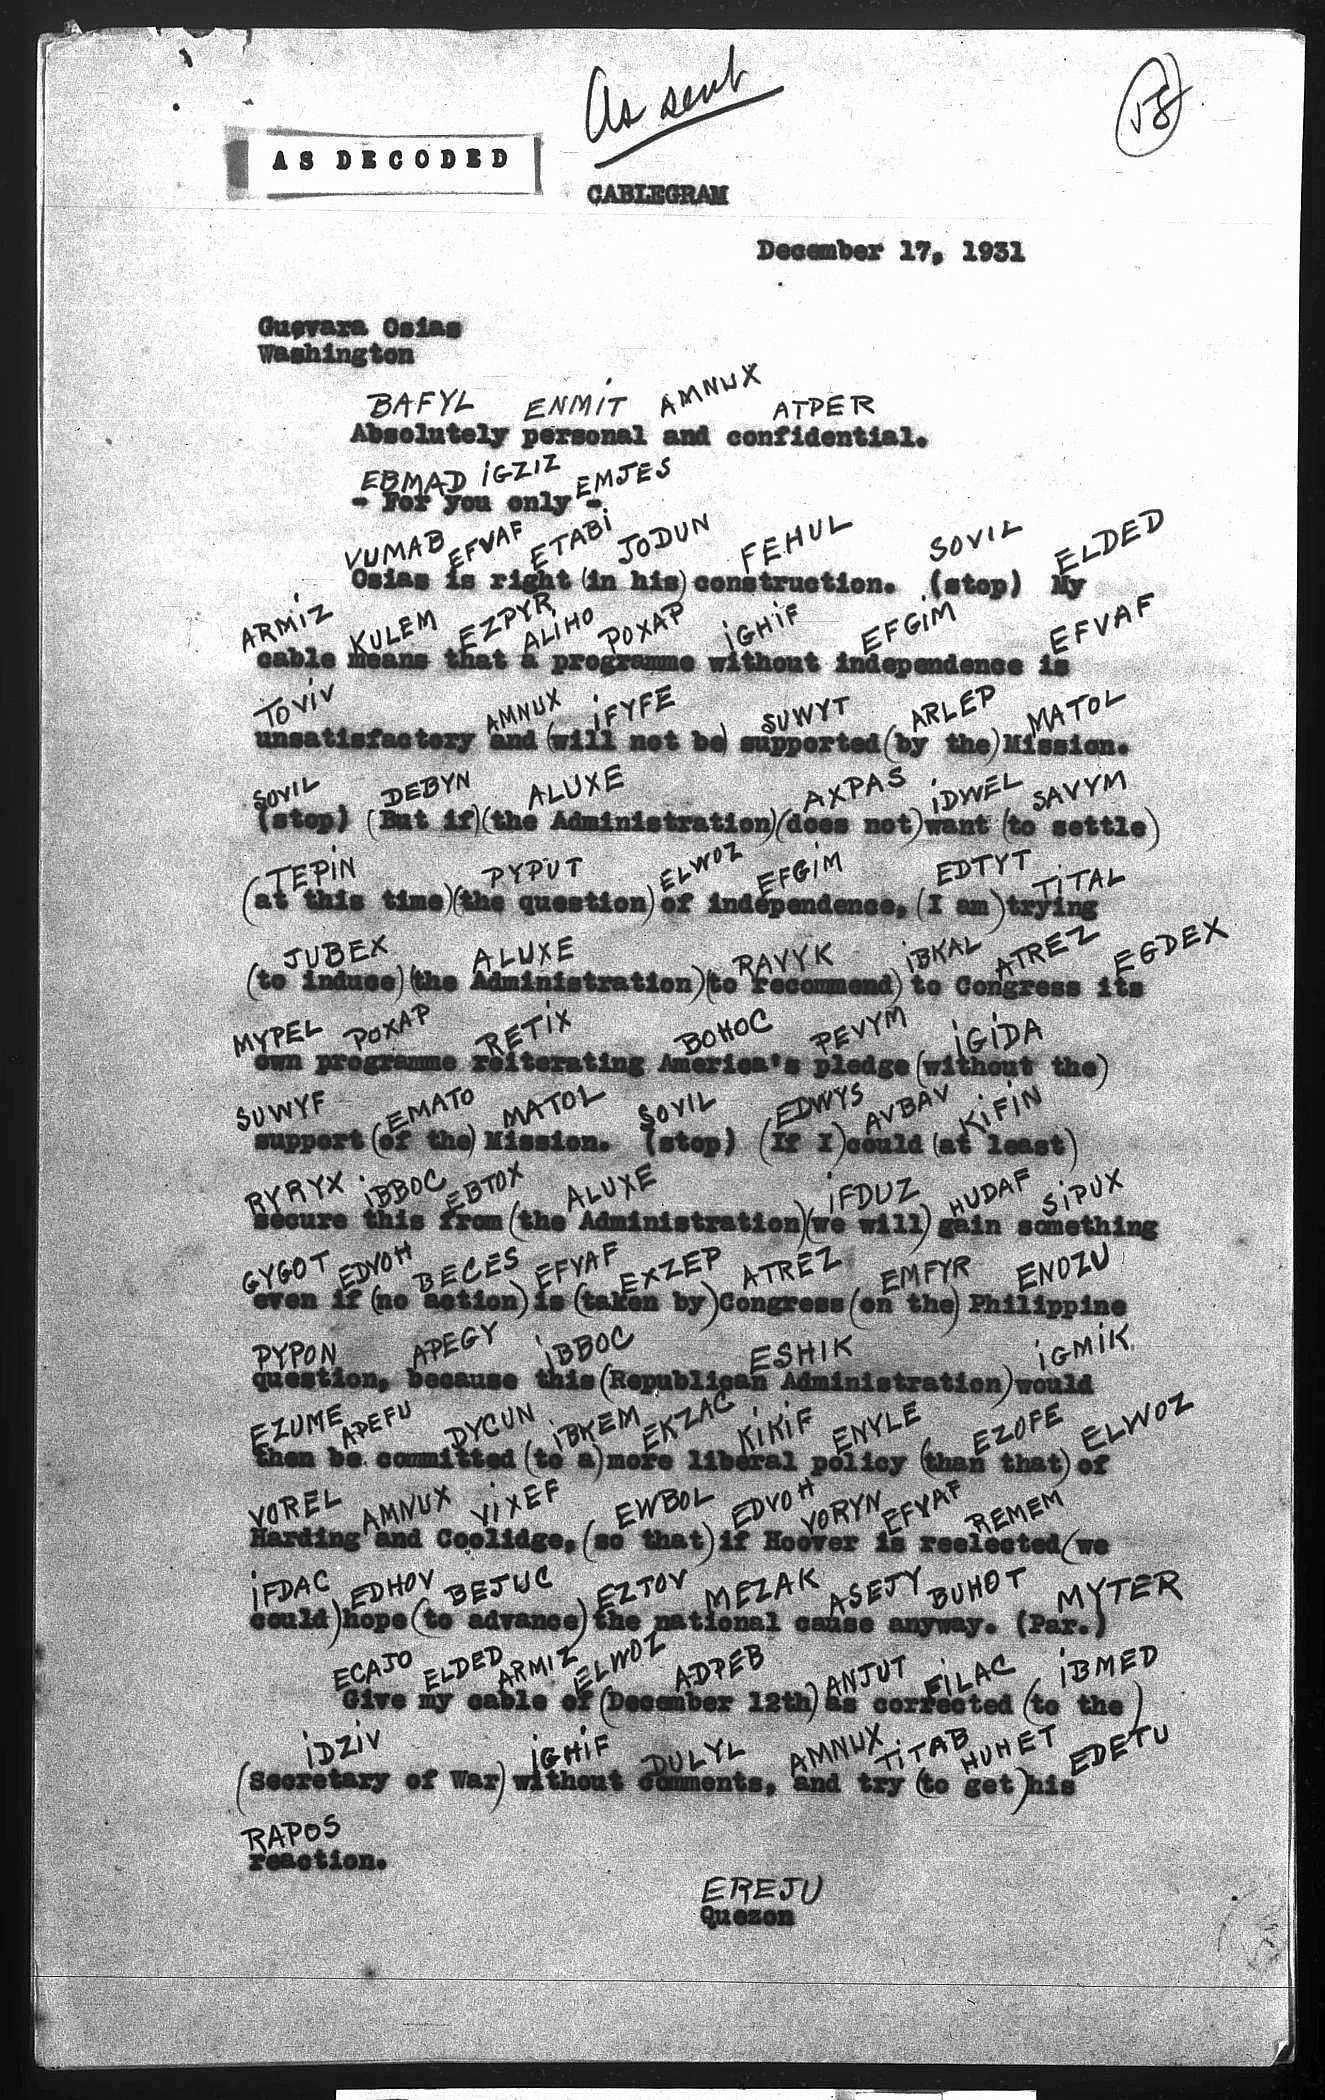 As sent
58
AS DECODED
CABLEGRAM
December 17, 1931
Guevara Osias
Washington
BAFYL ENMIT AMNUX ATPER
Absolutely personal and confidential.
EBMAD IGZIZ EMJES
- For you only -
VUMAB EFVAF ETABI JODUN FEHUL SOVIL ELDED
Osias is right (in his) construction. (stop) My
ARMIZ KULEM EZPYR ALIHO POXAP IGHIF EFGIM EFVAF
cable means that a programme without independence is
TOVIV AMNUX IFYFE SUWYT ARLEP MATOL
unsatisfactory and (will not be) supported (by the) Mission.
SOVIL DEBYN ALUXE AXPAS IDWEL SAVYM
(stop) (But if) (the Administration) (does not) want (to settle)
TEPIN PYPUT ELWOZ EFGIM EDTYT TITAL
(at this time) (the question) of independence, (I am) trying
JUBEX ALUXE RAVYK IBKAL ATREZ EGDEX
(to induce) (the Administration) (to recommend) to Congress its
MYPEL POXAP RETIX BOHOC PEVYM IGIDA
own programme reiterating America's pledge (without the)
SUWYF EMATO MATOL SOVIL EDWYS AVBAV KIFIN
support (of the) Mission. (stop) (If I) could (at least)
RYRYX IBBOC EBTOX ALUXE IFDUZ HUDAF SIPUX
secure this from (the Administration) (we will) gain something
GYGOT EDVOH BECES EFVAF EXZEP ATREZ EMFYR ENOZU
even if (no action) is (taken by) Congress (on the) Philippine
PYPON APEGY IBBOC ESHIK IGMIK
question, because this (Republican Administration) would
EZUME APEFU DYCUN IBKEM EKZAC KIKIF ENYLE EZOFE ELWOZ
then be committed (to a) more liberal policy (than that) of
VOREL AMNUX VIXEF EWBOL EDVOH VORYN EFVAF REMEM
Harding and Coolidge, (so that) if Hoover is reelected (we
IFDAC EDHOV BEJUC EZTOV MEZAK ASEJY BUHOT MYTER
could) hope (to advance) the national cause anyway. (Par.)
ECAJO ELDED ARMIZ ELWOZ ADPEB ANJUT FILAC IBMED
Give my cable of (December 12th) as corrected (to the)
IDZIV IGHIF DULYL AMNUX TITAB HUHET EDETU
(Secretary of War) without comments, and try (to get) his
RAPOS
reaction.
EREJU
Quezon